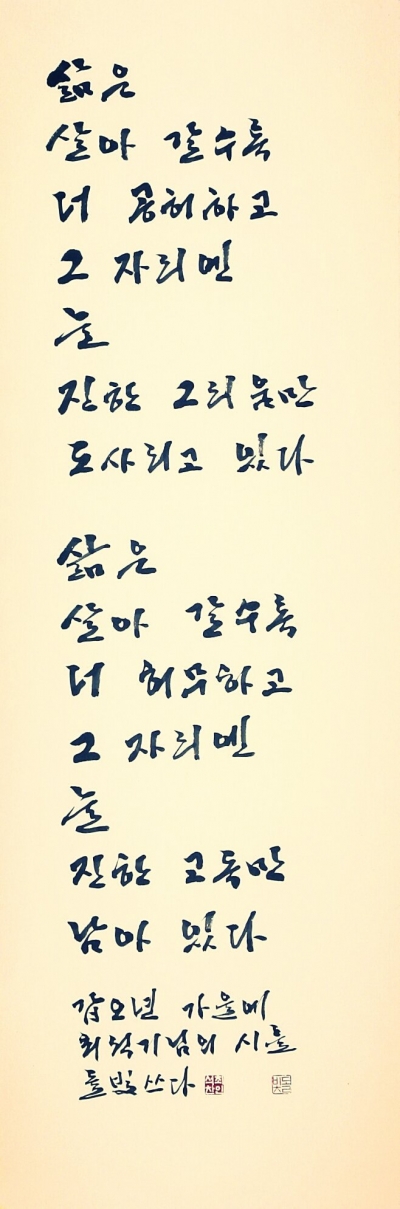 삶은
살아 갈수록
더 공허하고
그 자리엔
늘
진한 그리움만
도사리고 있다
삶은
살아 갈수록
더 허무하고
그 자리엔
늘
진한 고독만
남아 있다
갑오년 가을에
최석기님의 시를
돌빛 쓰다